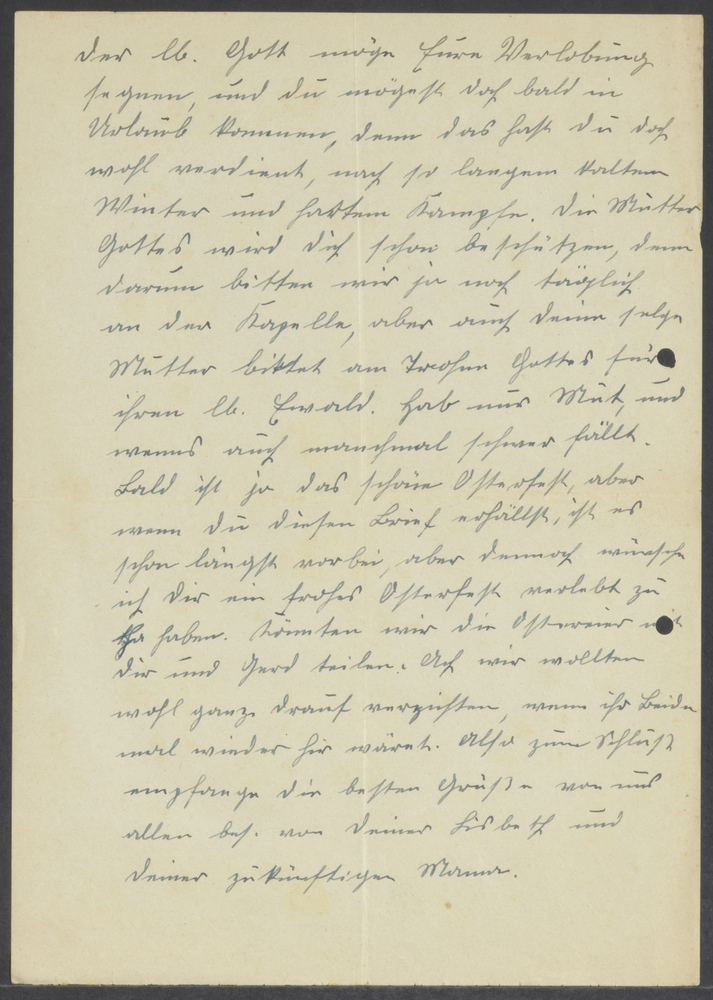 Der lb. Gott möge Eure Verlobung
segnen, und du mögest doch bald in
Urlaub kommen, denn das hast du doch
wohl verdient, nach so langem kalten
Winter und hartem Kampfe. Die Mutter
Gottes wird dich schon beschützen, denn
darum bitten wir ja noch täglich
an der Kapelle, aber auch deine selge
Mutter bittet am Trohne Gottes für
ihren lb. Ewald. Hab nur Mut, und
wenns auch manchmal schwer fällt.
Bald ist ja das schöne Osterfest, aber
wenn du diesen Brief erhällst, ist es
schon längst vorbei, aber dennoch wünsche
ich dir ein frohes Osterfest verlebt zu
haben. Könnten wir die Ostereier mit
dir und Gerd teilen. Ach wir wollten
wohl ganz drauf verzichten, wenn ihr Beide
mal wieder hir wäret. Also zum Schluß
empfange die besten Grüße von uns
allen bes. von deiner Lisbeth und
deiner zukünftigen Mama.